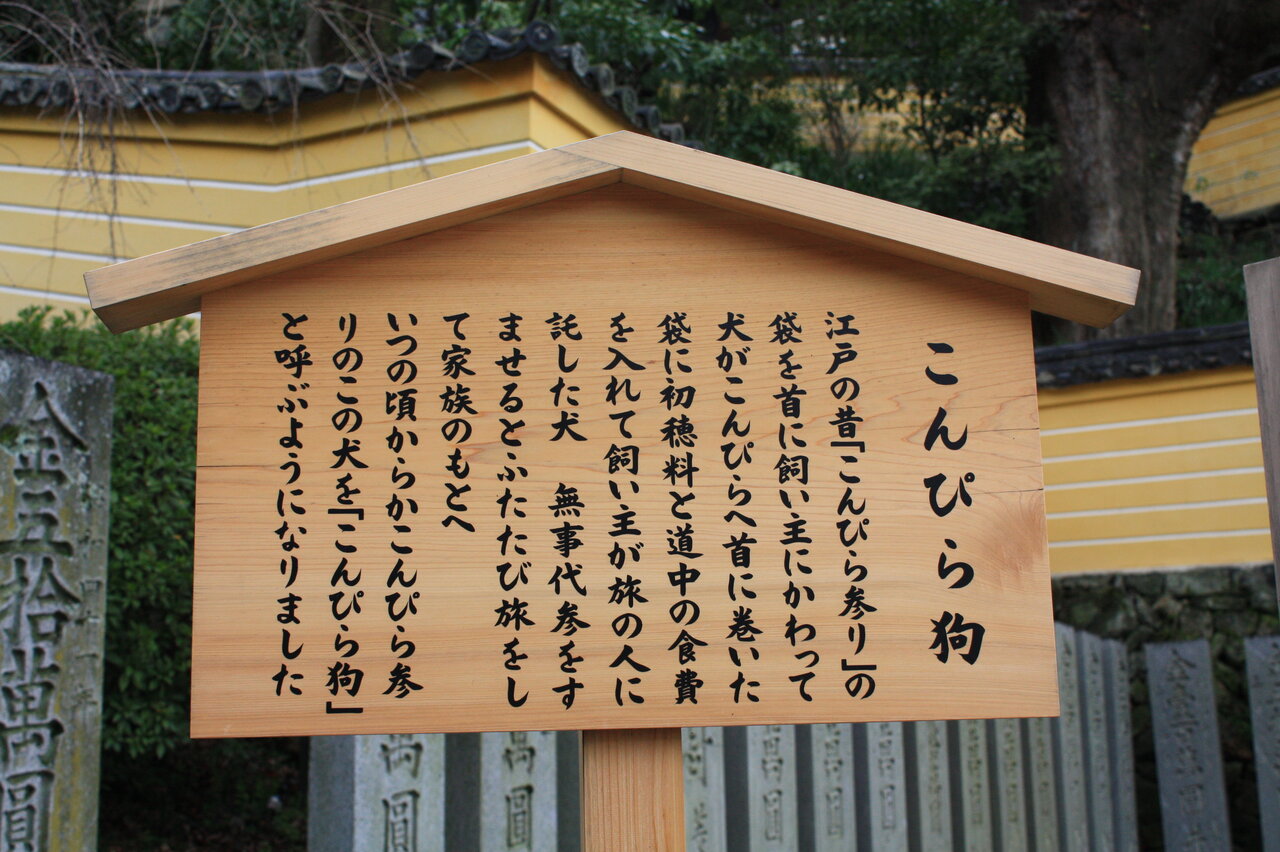 こんぴら狗
江戸の昔「こんぴら参り」の
袋を首に飼い主にかわって
犬がこんぴらへ首に巻いた
袋に初穂料と道中の食費
を入れて飼い主が旅の人に
託した犬　無事代参をす
ませるとふたたび旅をし
て家族のもとへ
いつの頃からかこんぴら参
りのこの犬を「こんぴら狗」
と呼ぶようになりました
金五拾萬圓
萬圓
萬圓